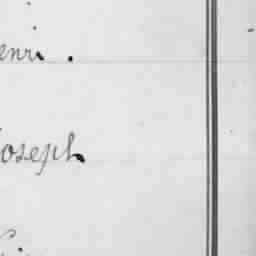 enri.
Joseph